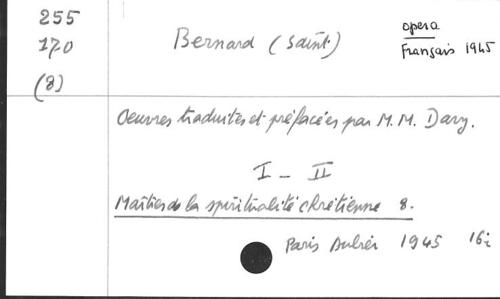 255
170
(8)
Bernard (Saint)
opera
Français 1945
Oeuvres traduites et préfacées par M. M. Davy.
I - II
Maîtres de la spiritualité chrétienne 8.
Paris Aubier 1945 16